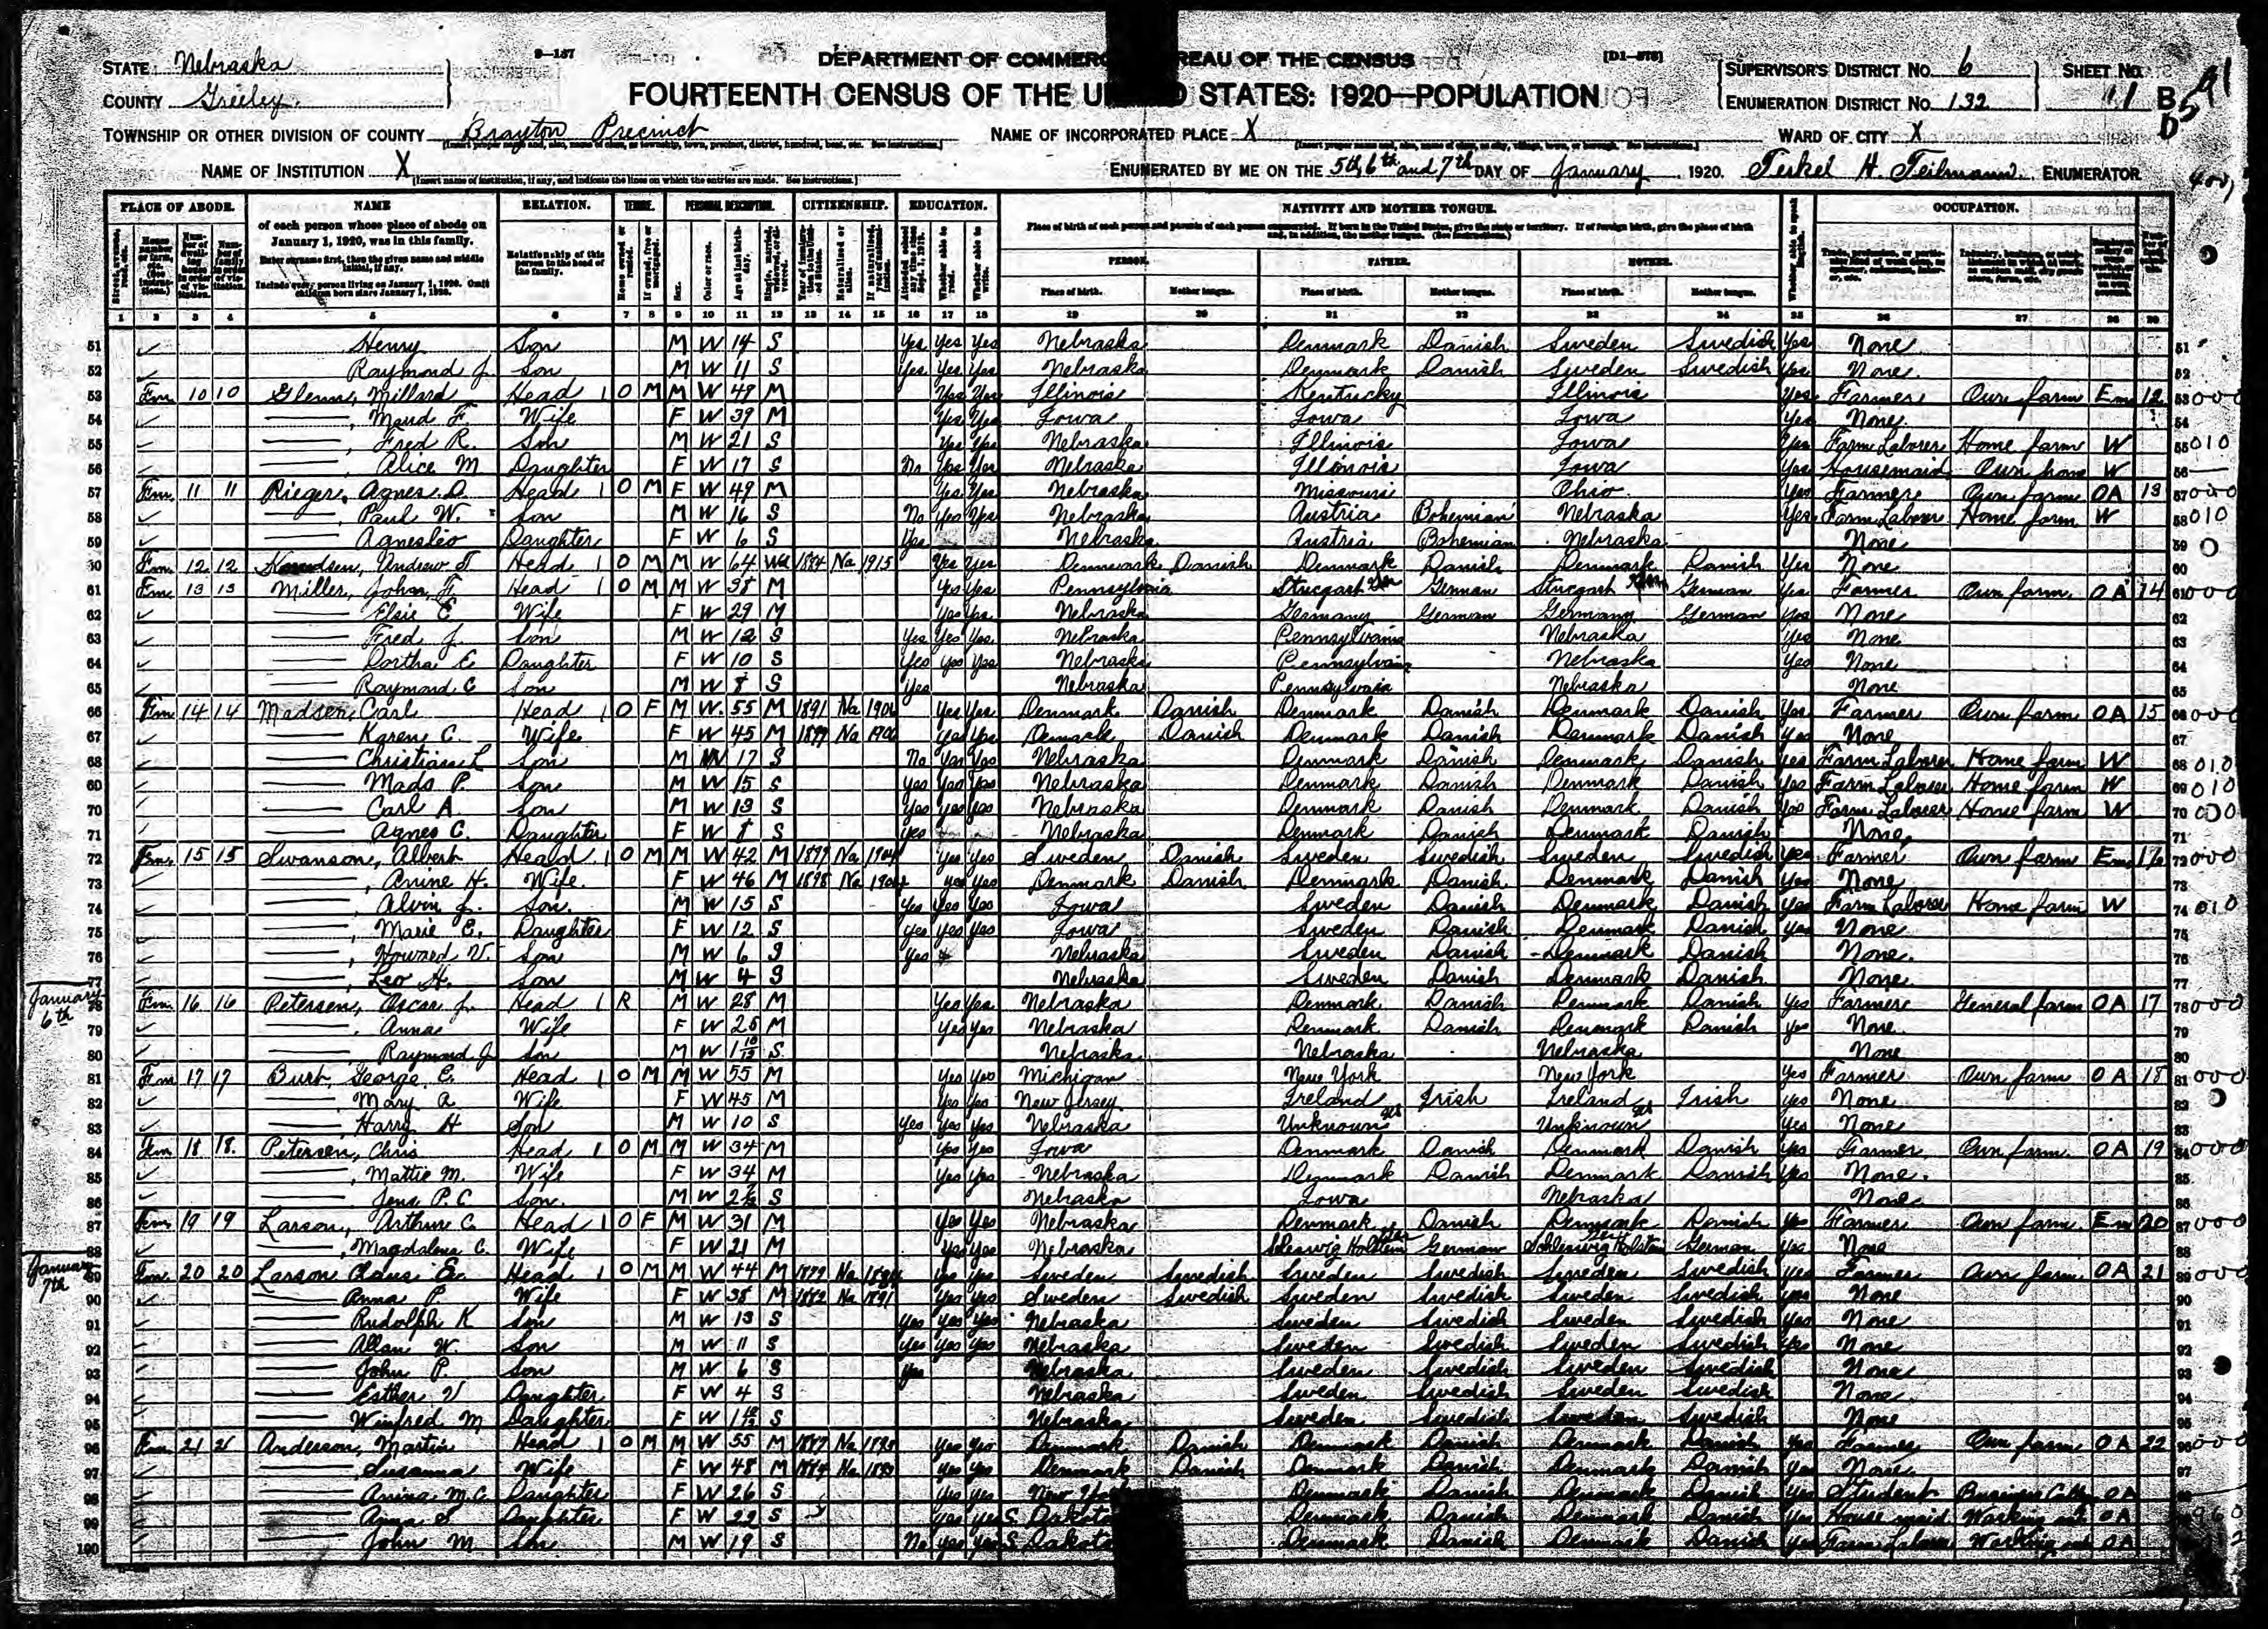 9-137
DEPARTMENT OF COMMERC REAU OF THE CENSUS
[D1-578]
STATE Nebraska
COUNTY Greeley
FOURTEENTH CENSUS OF THE UN D STATES: 1920—POPULATION
SUPERVISOR'S DISTRICT NO. 6
ENUMERATION DISTRICT NO. 132
SHEET NO.
B
TOWNSHIP OR OTHER DIVISION OF COUNTY Brayton Precinct
NAME OF INCORPORATED PLACE X
WARD OF CITY X
NAME OF INSTITUTION X
[Insert name of institution, if any, and indicate the lines on which the entries are made. See instructions.]
ENUMERATED BY ME ON THE 5th, 6th and 7th DAY OF January, 1920. Terkel H. Teilmann, ENUMERATOR
PLACE OF ABODE. NAME RELATION. TENURE. PERSONAL DESCRIPTION. CITIZENSHIP. EDUCATION. NATIVITY AND MOTHER TONGUE. OCCUPATION.
of each person whose place of abode on January 1, 1920, was in this family.
Enter surname first, then the given name and middle initial, if any.
Include every person living on January 1, 1920. Omit children born since January 1, 1920.
Relationship of this person to the head of the family.
Place of birth of each person and parents of each person enumerated. If born in the United States, give the state or territory. If of foreign birth, give the place of birth and, in addition, the mother tongue. (See instructions.)
PERSON. FATHER. MOTHER.
Place of birth. Mother tongue. Place of birth. Mother tongue. Place of birth. Mother tongue.
1 2 3 4 5 6 7 8 9 10 11 12 13 14 15 16 17 18 19 20 21 22 23 24 25 26 27 28 29
51 Henry Son M W 14 S Yes Yes Yes Nebraska Denmark Danish Sweden Swedish Yes None 51
52 Raymond J. Son M W 11 S Yes Yes Yes Nebraska Denmark Danish Sweden Swedish Yes None 52
53 Fm 10 10 Glenn, Millard Head 1 O M M W 49 M Yes Yes Illinois Kentucky Illinois Yes Farmer Own farm Em 12 53 000
54 Maud F. Wife F W 39 M Yes Yes Iowa Iowa Iowa Yes None 54
55 Fred R. Son M W 21 S Yes Yes Nebraska Illinois Iowa Yes Farm Laborer Home farm W 55 010
56 Alice M Daughter F W 17 S No Yes Yes Nebraska Illinois Iowa Yes Housemaid Own home W 56
57 Fm 11 11 Rieger, Agnes D. Head 1 O M F W 49 M Yes Yes Nebraska Missouri Ohio Yes Farmer Own farm OA 13 57 000
58 Paul W. Son M W 16 S No Yes Yes Nebraska Austria Bohemian Nebraska Yes Farm Laborer Home farm W 58 010
59 Agnesleo Daughter F W 6 S Yes Nebraska Austria Bohemian Nebraska None 59
60 Fm 12 12 Knudsen, Andrew Head 1 O M M W 64 Wd 1884 Na 1915 Yes Yes Denmark Danish Denmark Danish Denmark Danish Yes None 60
61 Fm 13 13 Miller, John F. Head 1 O M M W 38 M Yes Yes Pennsylvania German German Yes Farmer Own farm OA 14 61 000
62 Elsie E Wife F W 29 M Yes Yes Nebraska Germany German Germany German Yes None 62
63 Fred J. Son M W 12 S Yes Yes Yes Nebraska Pennsylvania Nebraska Yes None 63
64 Dortha E Daughter F W 10 S Yes Yes Yes Nebraska Pennsylvania Nebraska Yes None 64
65 Raymond C Son M W 8 S Yes Nebraska Pennsylvania Nebraska None 65
66 Fm 14 14 Madsen, Carl Head 1 O F M W 55 M 1891 Na Yes Yes Denmark Danish Denmark Danish Denmark Danish Yes Farmer Own farm OA 15 66 000
67 Karen C. Wife F W 45 M 1899 Na Yes Yes Denmark Danish Denmark Danish Denmark Danish Yes None 67
68 Christian L Son M W 17 S No Yes Yes Nebraska Denmark Danish Denmark Danish Yes Farm Laborer Home farm W 68 010
69 Mads P. Son M W 15 S Yes Yes Yes Nebraska Denmark Danish Denmark Danish Yes Farm Laborer Home farm W 69 010
70 Carl A. Son M W 13 S Yes Yes Yes Nebraska Denmark Danish Denmark Danish Yes Farm Laborer Home farm W 70
71 Agnes C. Daughter F W 8 S Yes Nebraska Denmark Danish Denmark Danish None 71
72 Fm 15 15 Swanson, Albert Head 1 O M M W 42 M 1899 Na 1904 Yes Yes Sweden Danish Sweden Swedish Sweden Swedish Yes Farmer Own farm Em 16 72 000
73 Anine H. Wife F W 46 M 1898 Na 1904 Yes Yes Denmark Danish Denmark Danish Denmark Danish Yes None 73
74 Alvin J. Son M W 15 S Yes Yes Yes Iowa Sweden Danish Denmark Danish Yes Farm Laborer Home farm W 74 010
75 Marie E. Daughter F W 12 S Yes Yes Yes Iowa Sweden Danish Denmark Danish Yes None 75
76 Howard V. Son M W 6 S Yes Nebraska Sweden Danish Denmark Danish None 76
77 Leo H. Son M W 4 S Nebraska Sweden Danish Denmark Danish None 77
January 6th
78 Fm 16 16 Petersen, Oscar J. Head 1 R M W 28 M Yes Yes Nebraska Denmark Danish Denmark Danish Yes Farmer General farm OA 17 78 000
79 Anna Wife F W 25 M Yes Yes Nebraska Denmark Danish Denmark Danish Yes None 79
80 Raymond J Son M W 1 10/12 S Nebraska Nebraska Nebraska None 80
81 Fm 17 17 Burt, George E. Head 1 O M M W 55 M Yes Yes Michigan New York New York Yes Farmer Own farm OA 18 81 000
82 Mary A Wife F W 45 M Yes Yes New Jersey Ireland Irish Ireland Irish Yes None 82
83 Harry H Son M W 10 S Yes Yes Yes Nebraska Unknown Unknown Yes None 83
84 Fm 18 18 Petersen, Chris Head 1 O M M W 34 M Yes Yes Iowa Denmark Danish Denmark Danish Yes Farmer Own farm OA 19 84 000
85 Mattie M. Wife F W 34 M Yes Yes Nebraska Denmark Danish Denmark Danish Yes None 85
86 Jens P.C. Son M W S Nebraska Iowa Nebraska None 86
87 Fm 19 19 Larson, Arthur C. Head 1 O F M W 31 M Yes Yes Nebraska Denmark Danish Denmark Danish Yes Farmer Own farm Em 20 87 000
88 Magdalena C. Wife F W 21 M Yes Yes Nebraska Sleswig Holstein German Schleswig Holstein German Yes None 88
January 7th
89 Fm 20 20 Larson Claus E. Head 1 O M M W 44 M Na Yes Yes Sweden Swedish Sweden Swedish Sweden Swedish Yes Farmer Own farm OA 21 89 000
90 Anna P. Wife F W 38 M 1882 Na 1891 Yes Yes Sweden Swedish Sweden Swedish Sweden Swedish Yes None 90
91 Rudolph K Son M W 13 S Yes Yes Yes Nebraska Sweden Swedish Sweden Swedish Yes None 91
92 Allan W. Son M W 11 S Yes Yes Yes Nebraska Sweden Swedish Sweden Swedish Yes None 92
93 John P. Son M W 6 S Yes Nebraska Sweden Swedish Sweden Swedish None 93
94 Esther V Daughter F W 4 S Nebraska Sweden Swedish Sweden Swedish None 94
95 Winfred M Daughter F W S Nebraska Sweden Swedish Sweden Swedish None 95
96 Fm 21 21 Anderson, Martin Head 1 O M M W 55 M Na Yes Yes Denmark Danish Denmark Danish Denmark Danish Yes Farmer Own farm OA 22 96 000
97 Susanna Wife F W 48 M 1884 Na Yes Yes Denmark Danish Denmark Danish Denmark Danish Yes None 97
98 Anina M.C. Daughter F W 26 S Yes Yes New Denmark Danish Denmark Danish Yes Student Business OA
99 Anna S Daughter F W 22 S Yes Yes S. Dakota Denmark Danish Denmark Danish Yes House maid Working out OA
100 John M Son M W 19 S No Yes Yes S. Dakota Denmark Danish Denmark Danish Yes Farm Laborer Working out OA